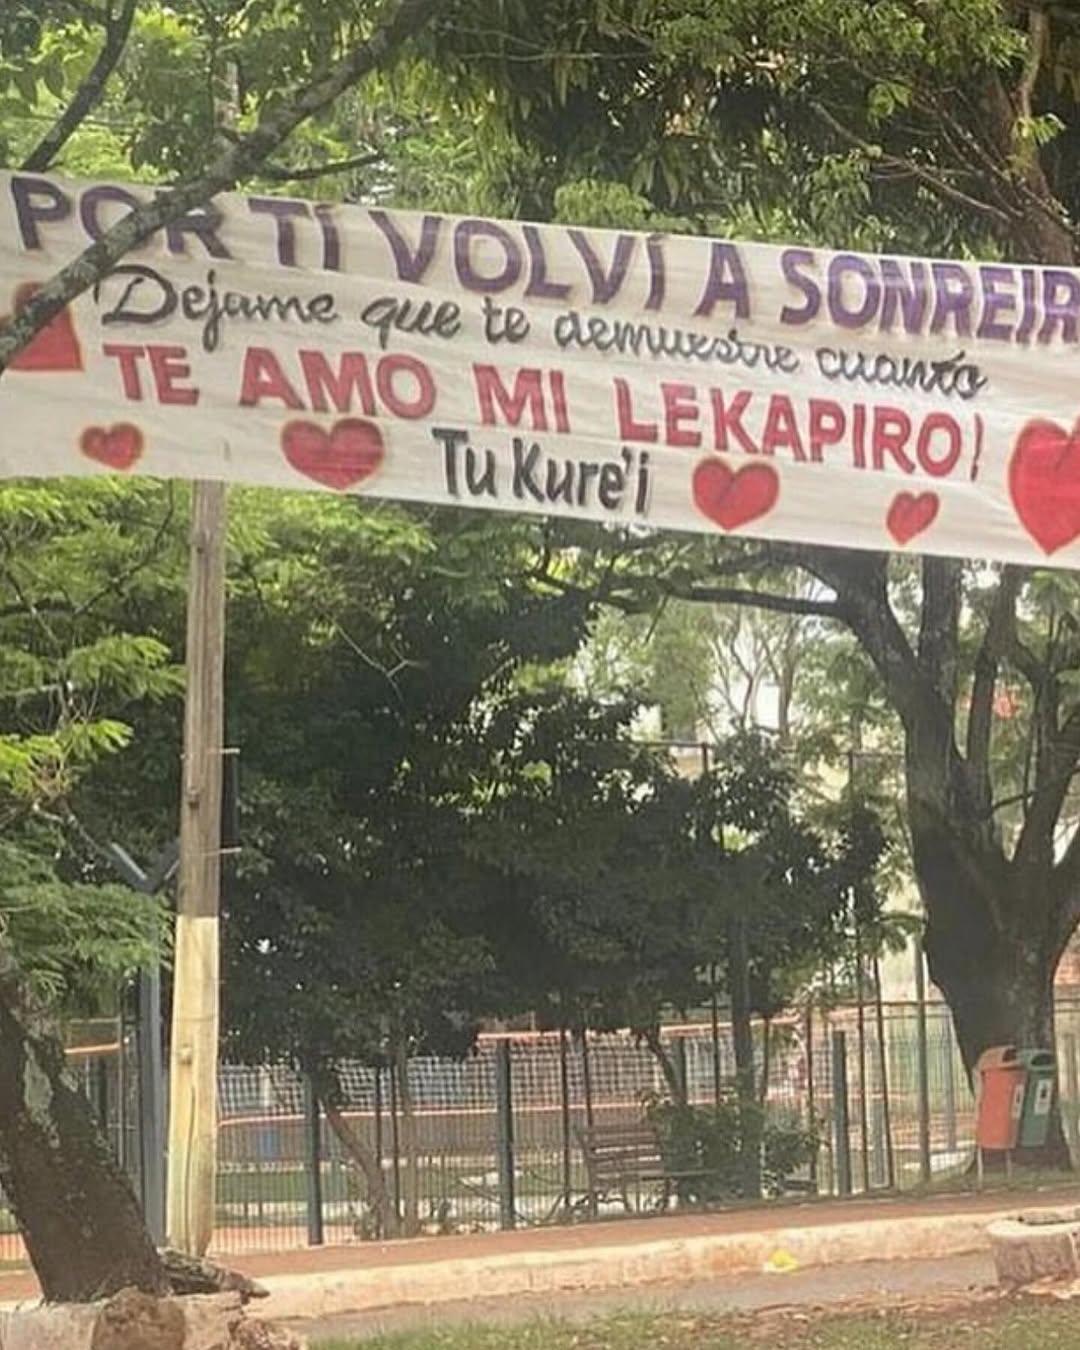 POR TI VOLVÍ A SONREIR
Dejame que te demuestre cuanto
TE AMO MI LEKAPIRO!
Tu Kure'i